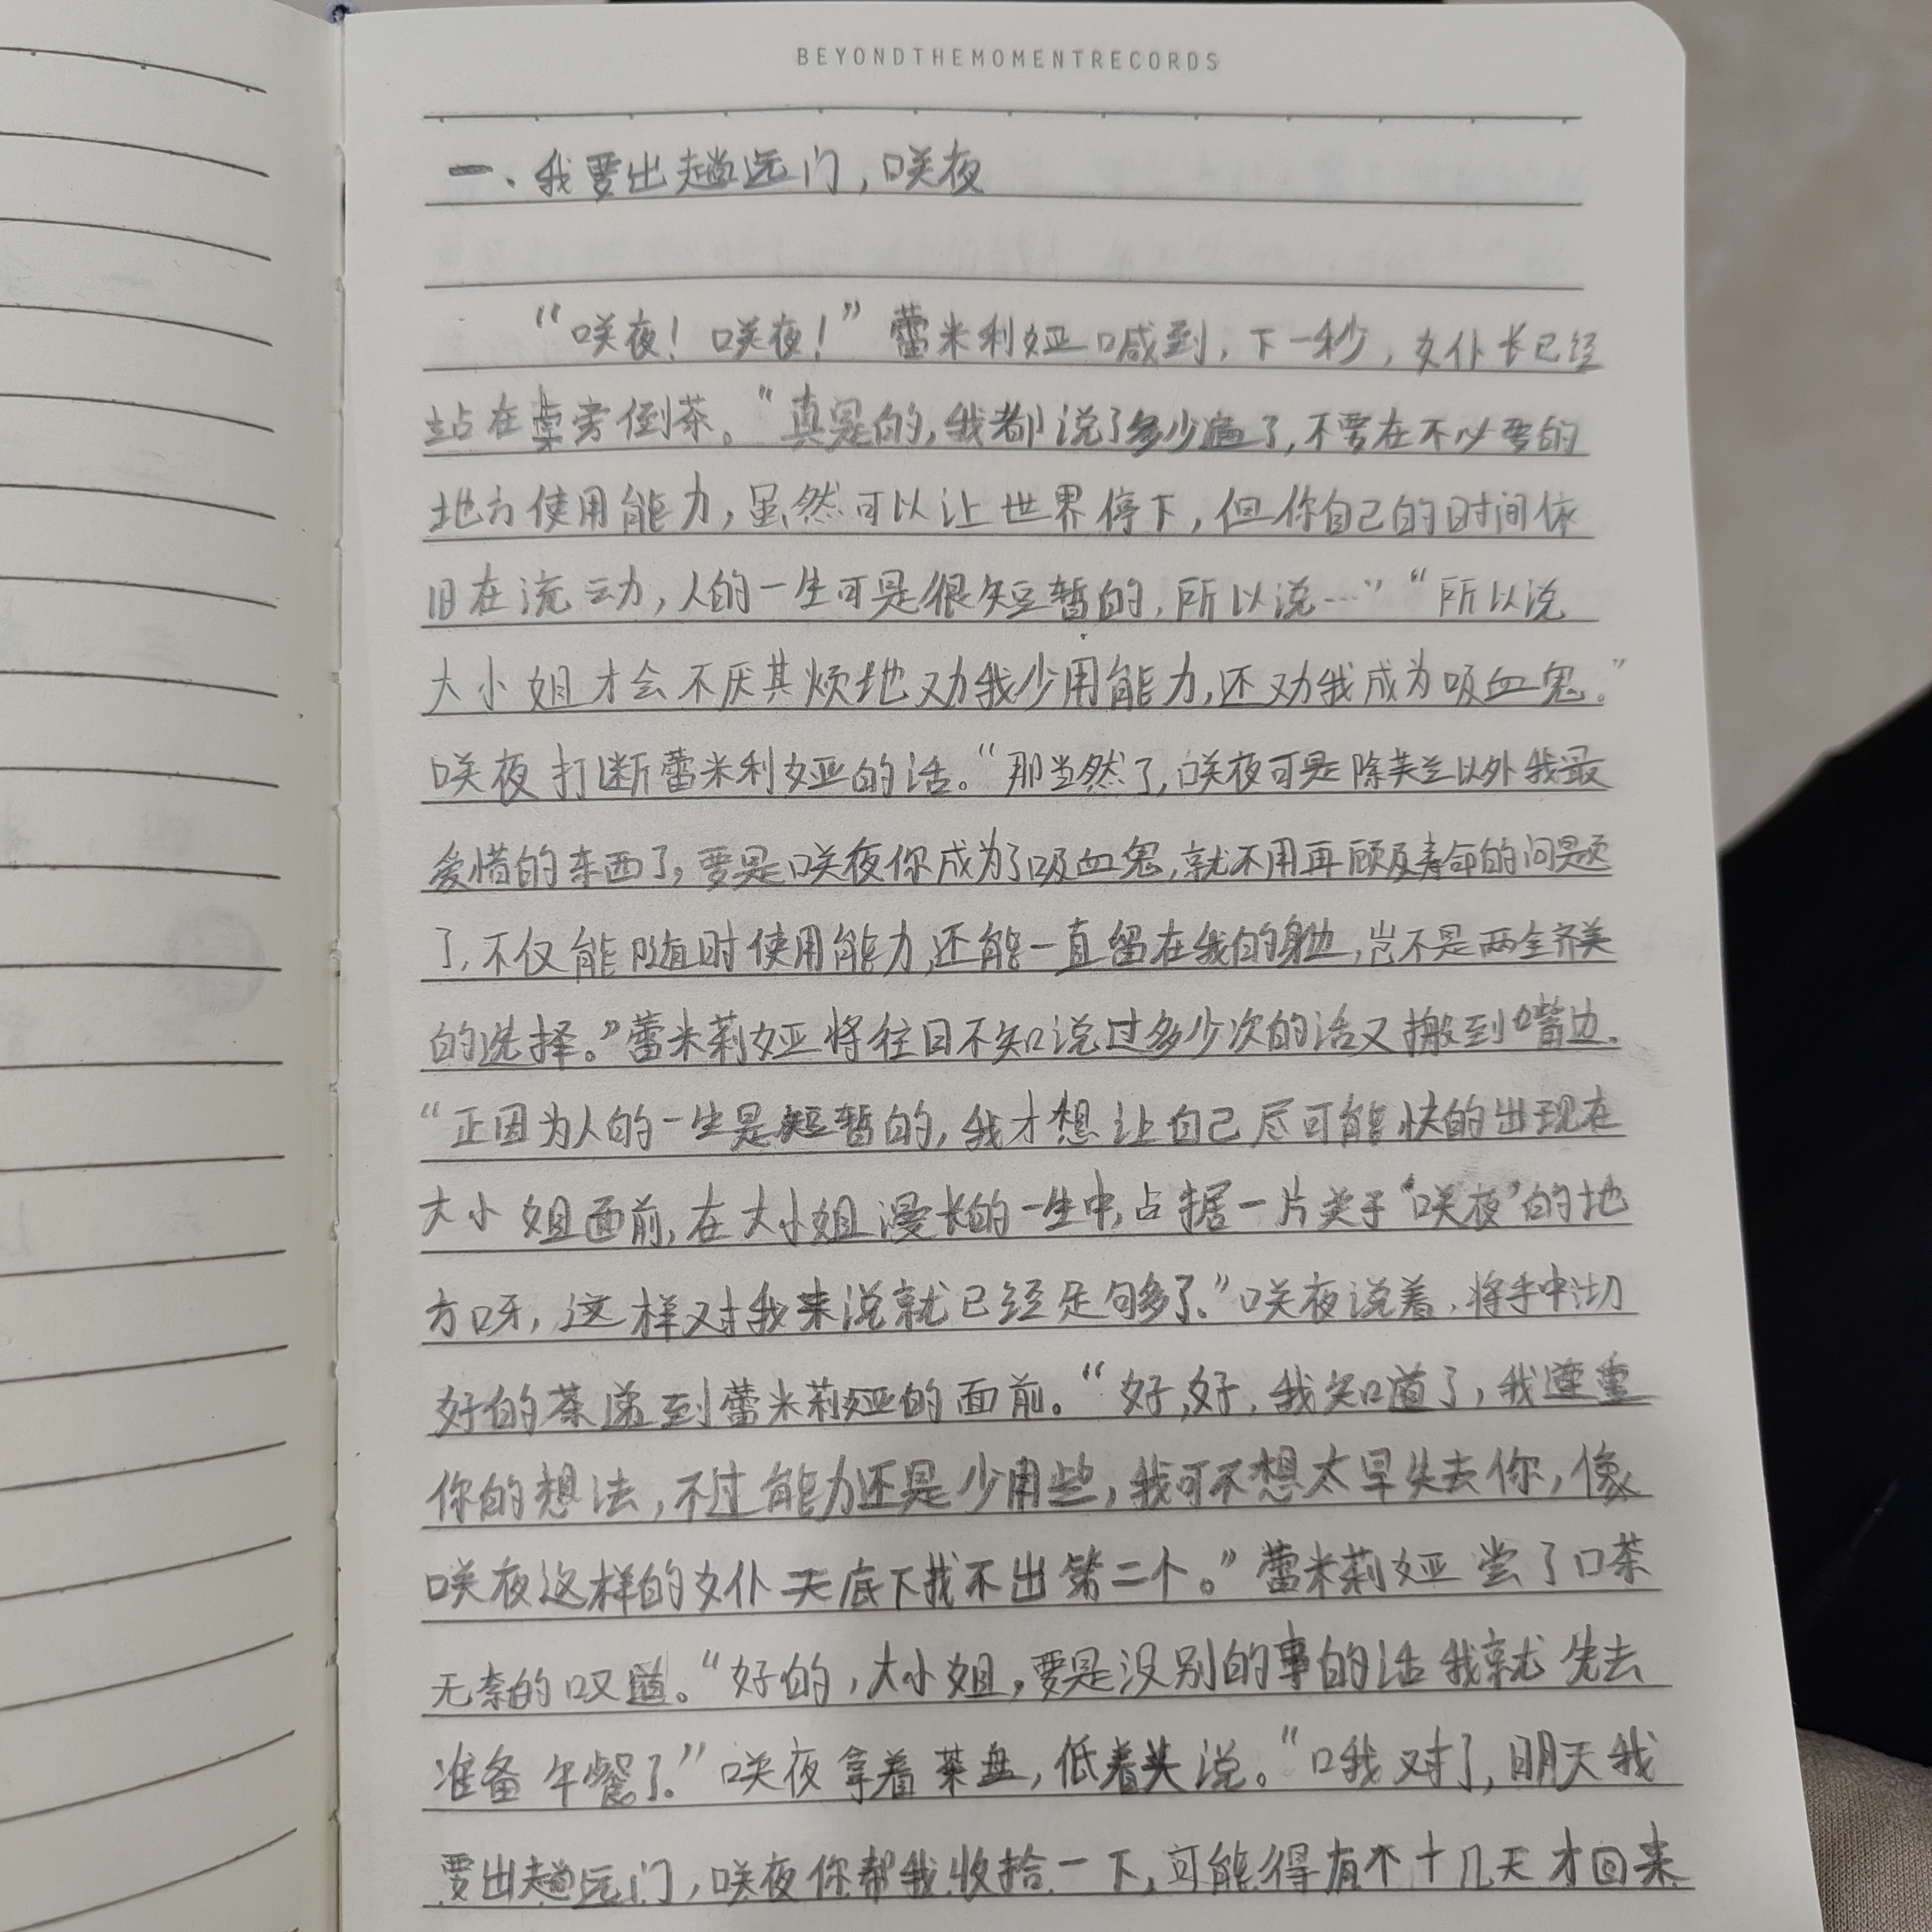 BEYONDTHEMOMENTRECORDS
一、我要出趟远门，咲夜
“咲夜！咲夜！”蕾米利娅喊到，下一秒，女仆长已经
站在桌旁倒茶。“真是的，我都说了多少遍了，不要在不必要的
地方使用能力，虽然可以让世界停下，但你自己的时间依
旧在流动，人的一生可是很短暂的，所以说…”“所以说
大小姐才会不厌其烦地劝我少用能力，还劝我成为吸血鬼。”
咲夜打断蕾米利娅的话。“那当然了，咲夜可是除芙兰以外我最
爱惜的东西了，要是咲夜你成为了吸血鬼，就不用再顾及寿命的问题
了，不仅能随时使用能力，还能一直留在我的身边，岂不是两全齐美
的选择。”蕾米莉娅将往日不知说过多少次的话又搬到嘴边。
“正因为人的一生是短暂的，我才想让自己尽可能快的出现在
大小姐面前，在大小姐漫长的一生中，占据一片关于‘咲夜’的地
方呀，这样对我来说就已经足够了。”咲夜说着，将手中沏
好的茶递到蕾米莉娅的面前。“好，好，我知道了，我遵重
你的想法，不过能力还是少用些，我可不想太早失去你，像
咲夜这样的女仆天底下找不出第二个。”蕾米莉娅尝了口茶
无奈的叹道。“好的，大小姐，要是没别的事的话我就先去
准备午餐了。”咲夜拿着茶盘，低着头说。“哦对了，明天我
要出趟远门，咲夜你帮我收拾一下，可能得有个十几天才回来